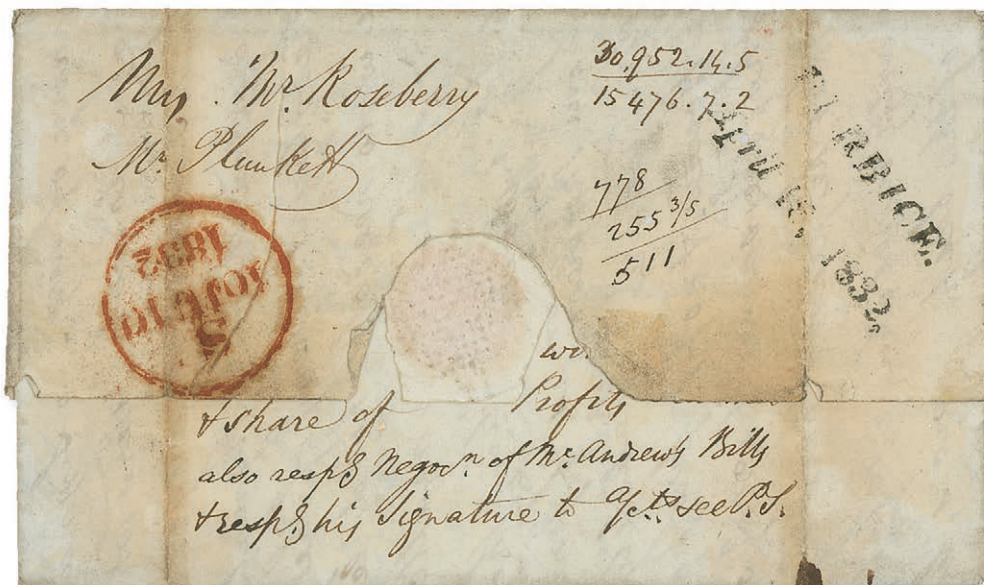 Mr. Roseberry
Mr. Plunkett
30,952.14.5
15476.7.2
778
255 3/5
511
BERBICE.
April 18, 1832.
S
10 JU 10
1832
& share of Profits
also respg Negocn. of Mr. Andrew's Bills
& respg his Signature to a/cts see P.S.